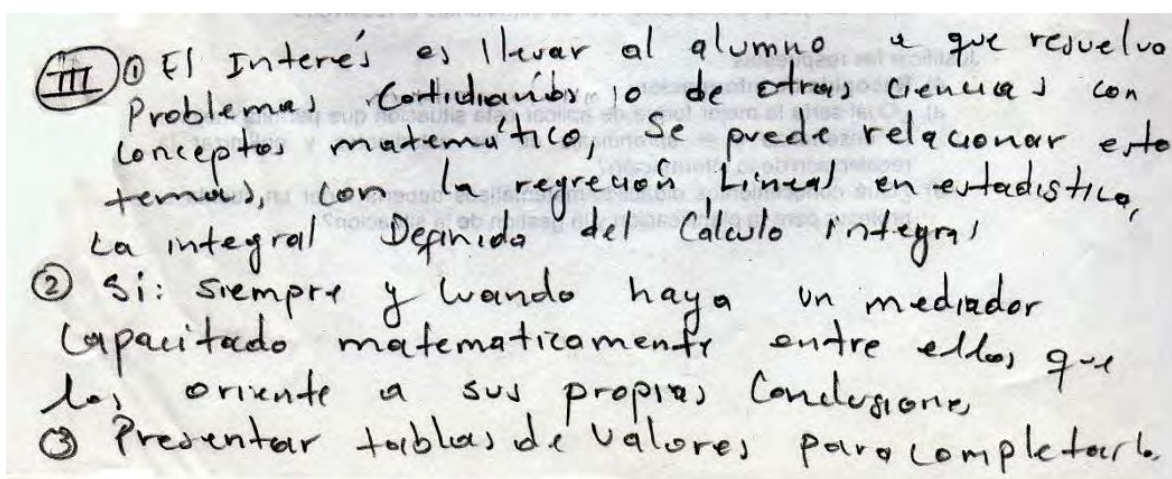 III ① El Interés es llevar al alumno a que resuelva
Problemas Cotidianos, o de otras ciencias con
conceptos matemático, se puede relacionar esto
temas, con la regresión Lineal en estadistica,
La integral Definida del Calculo integral
② Si: siempre y cuando haya un mediador
Capacitado matematicamente entre ellos que
los oriente a sus propias Conclusiones
③ Presentar tablas de valores para completarla